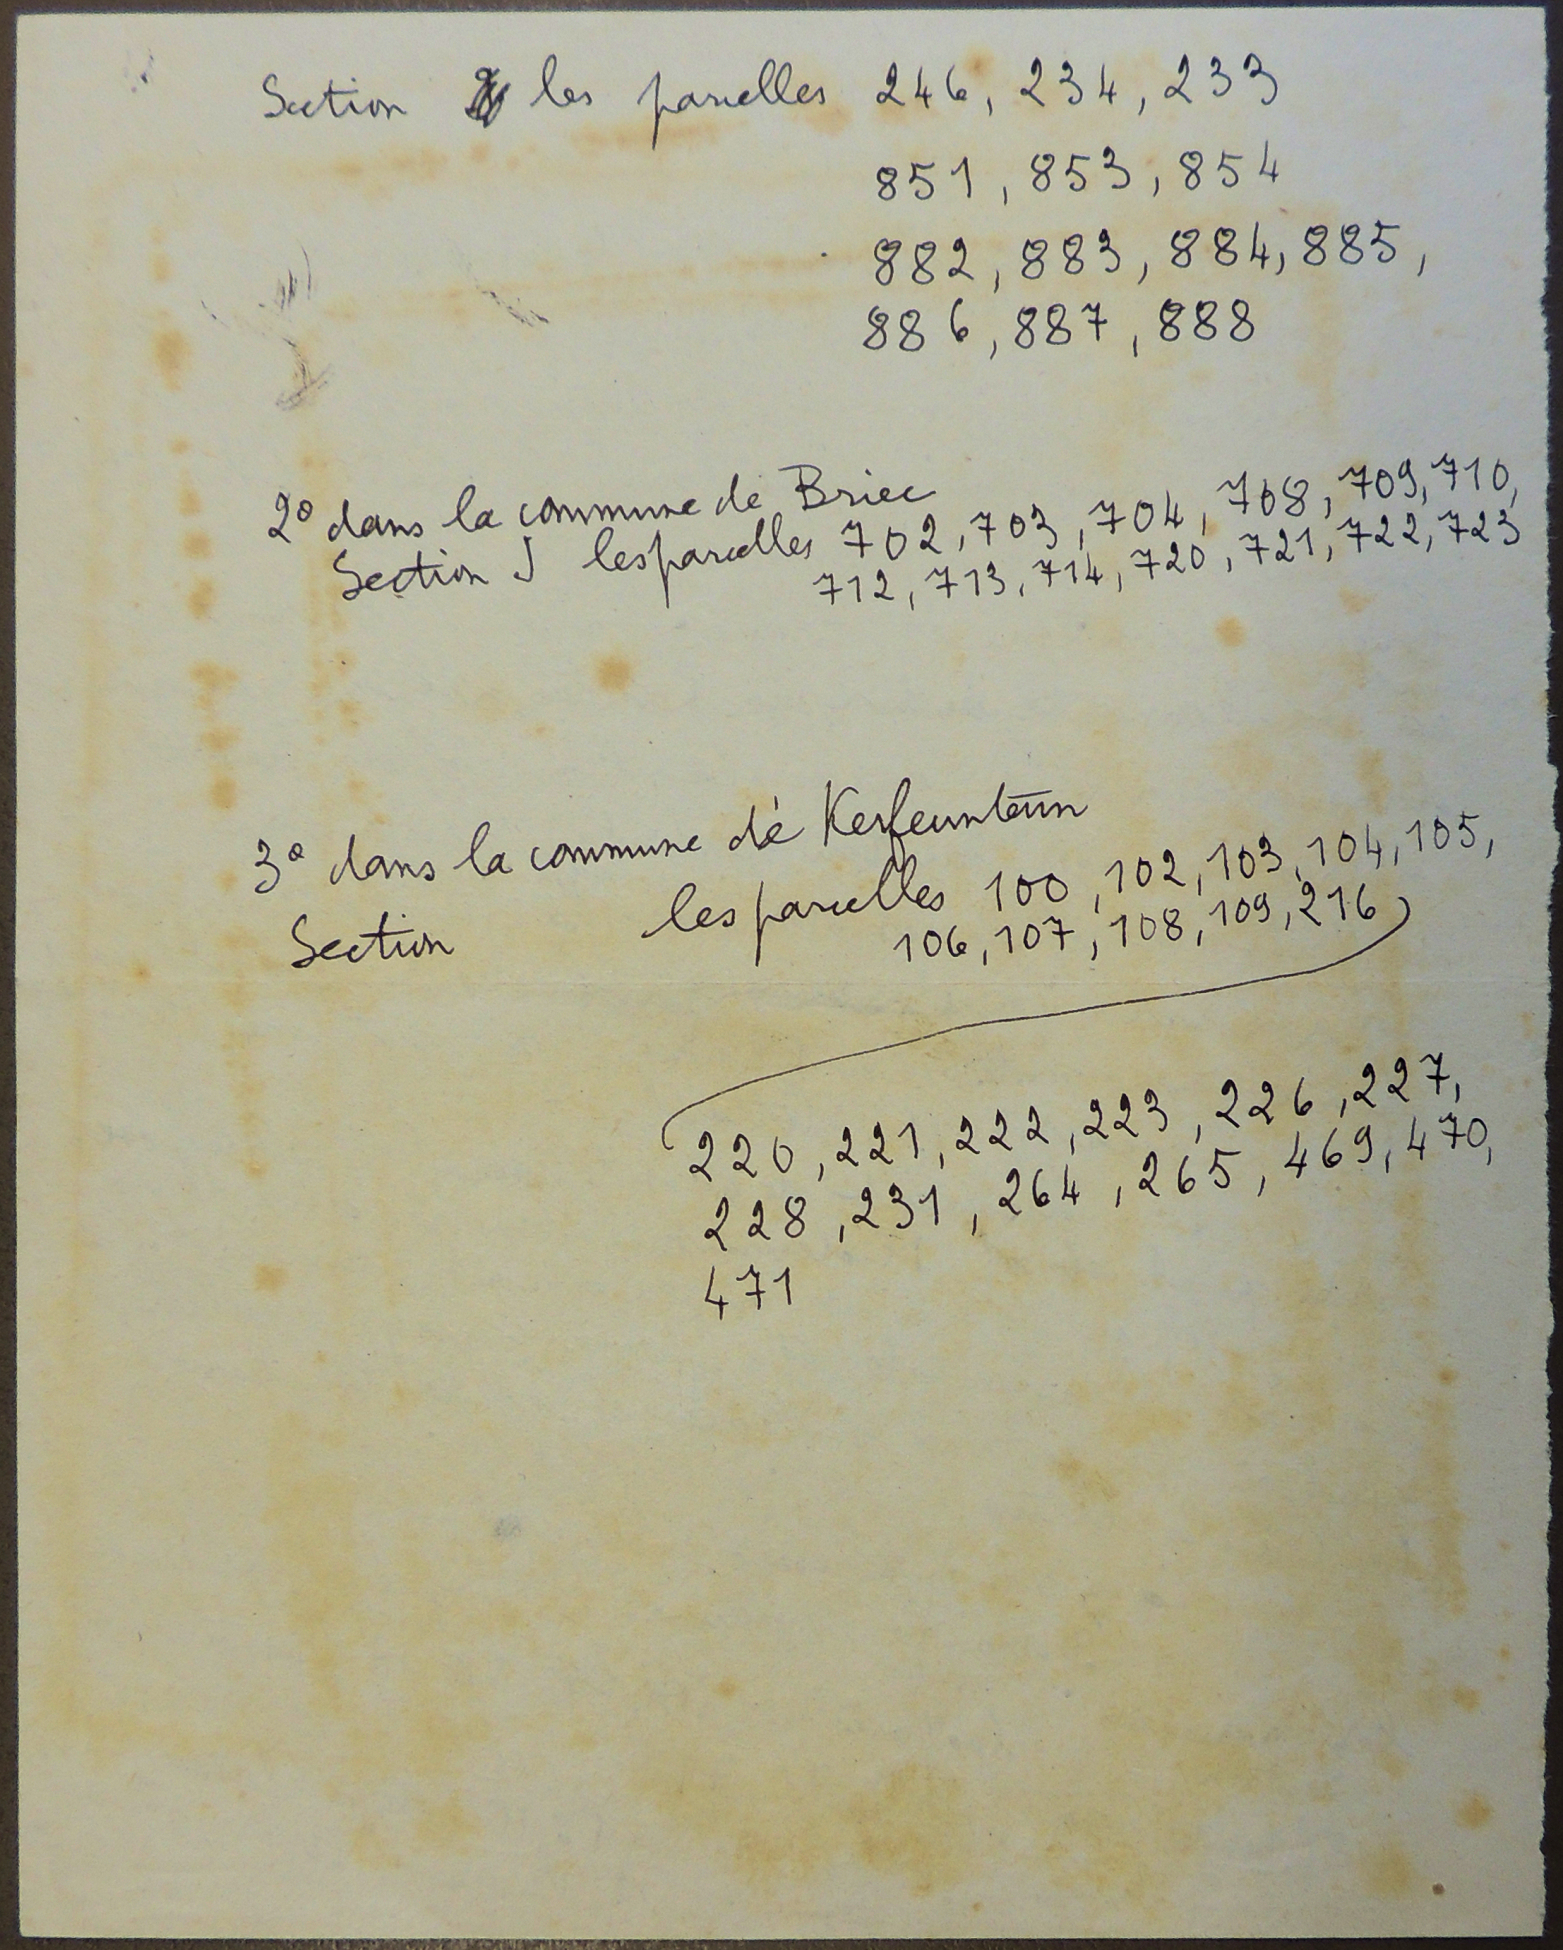 Section les parcelles 246, 234, 233
851, 853, 854
882, 883, 884, 885,
886, 887, 888
2° dans la commune de Briec
Section J les parcelles 702, 703, 704, 708, 709, 710,
712, 713, 714, 720, 721, 722, 723
3° dans la commune de Kerfeunteun
Section les parcelles 100, 102, 103, 104, 105,
106, 107, 108, 109, 216
220, 221, 222, 223, 226, 227,
228, 231, 264, 265, 469, 470,
471